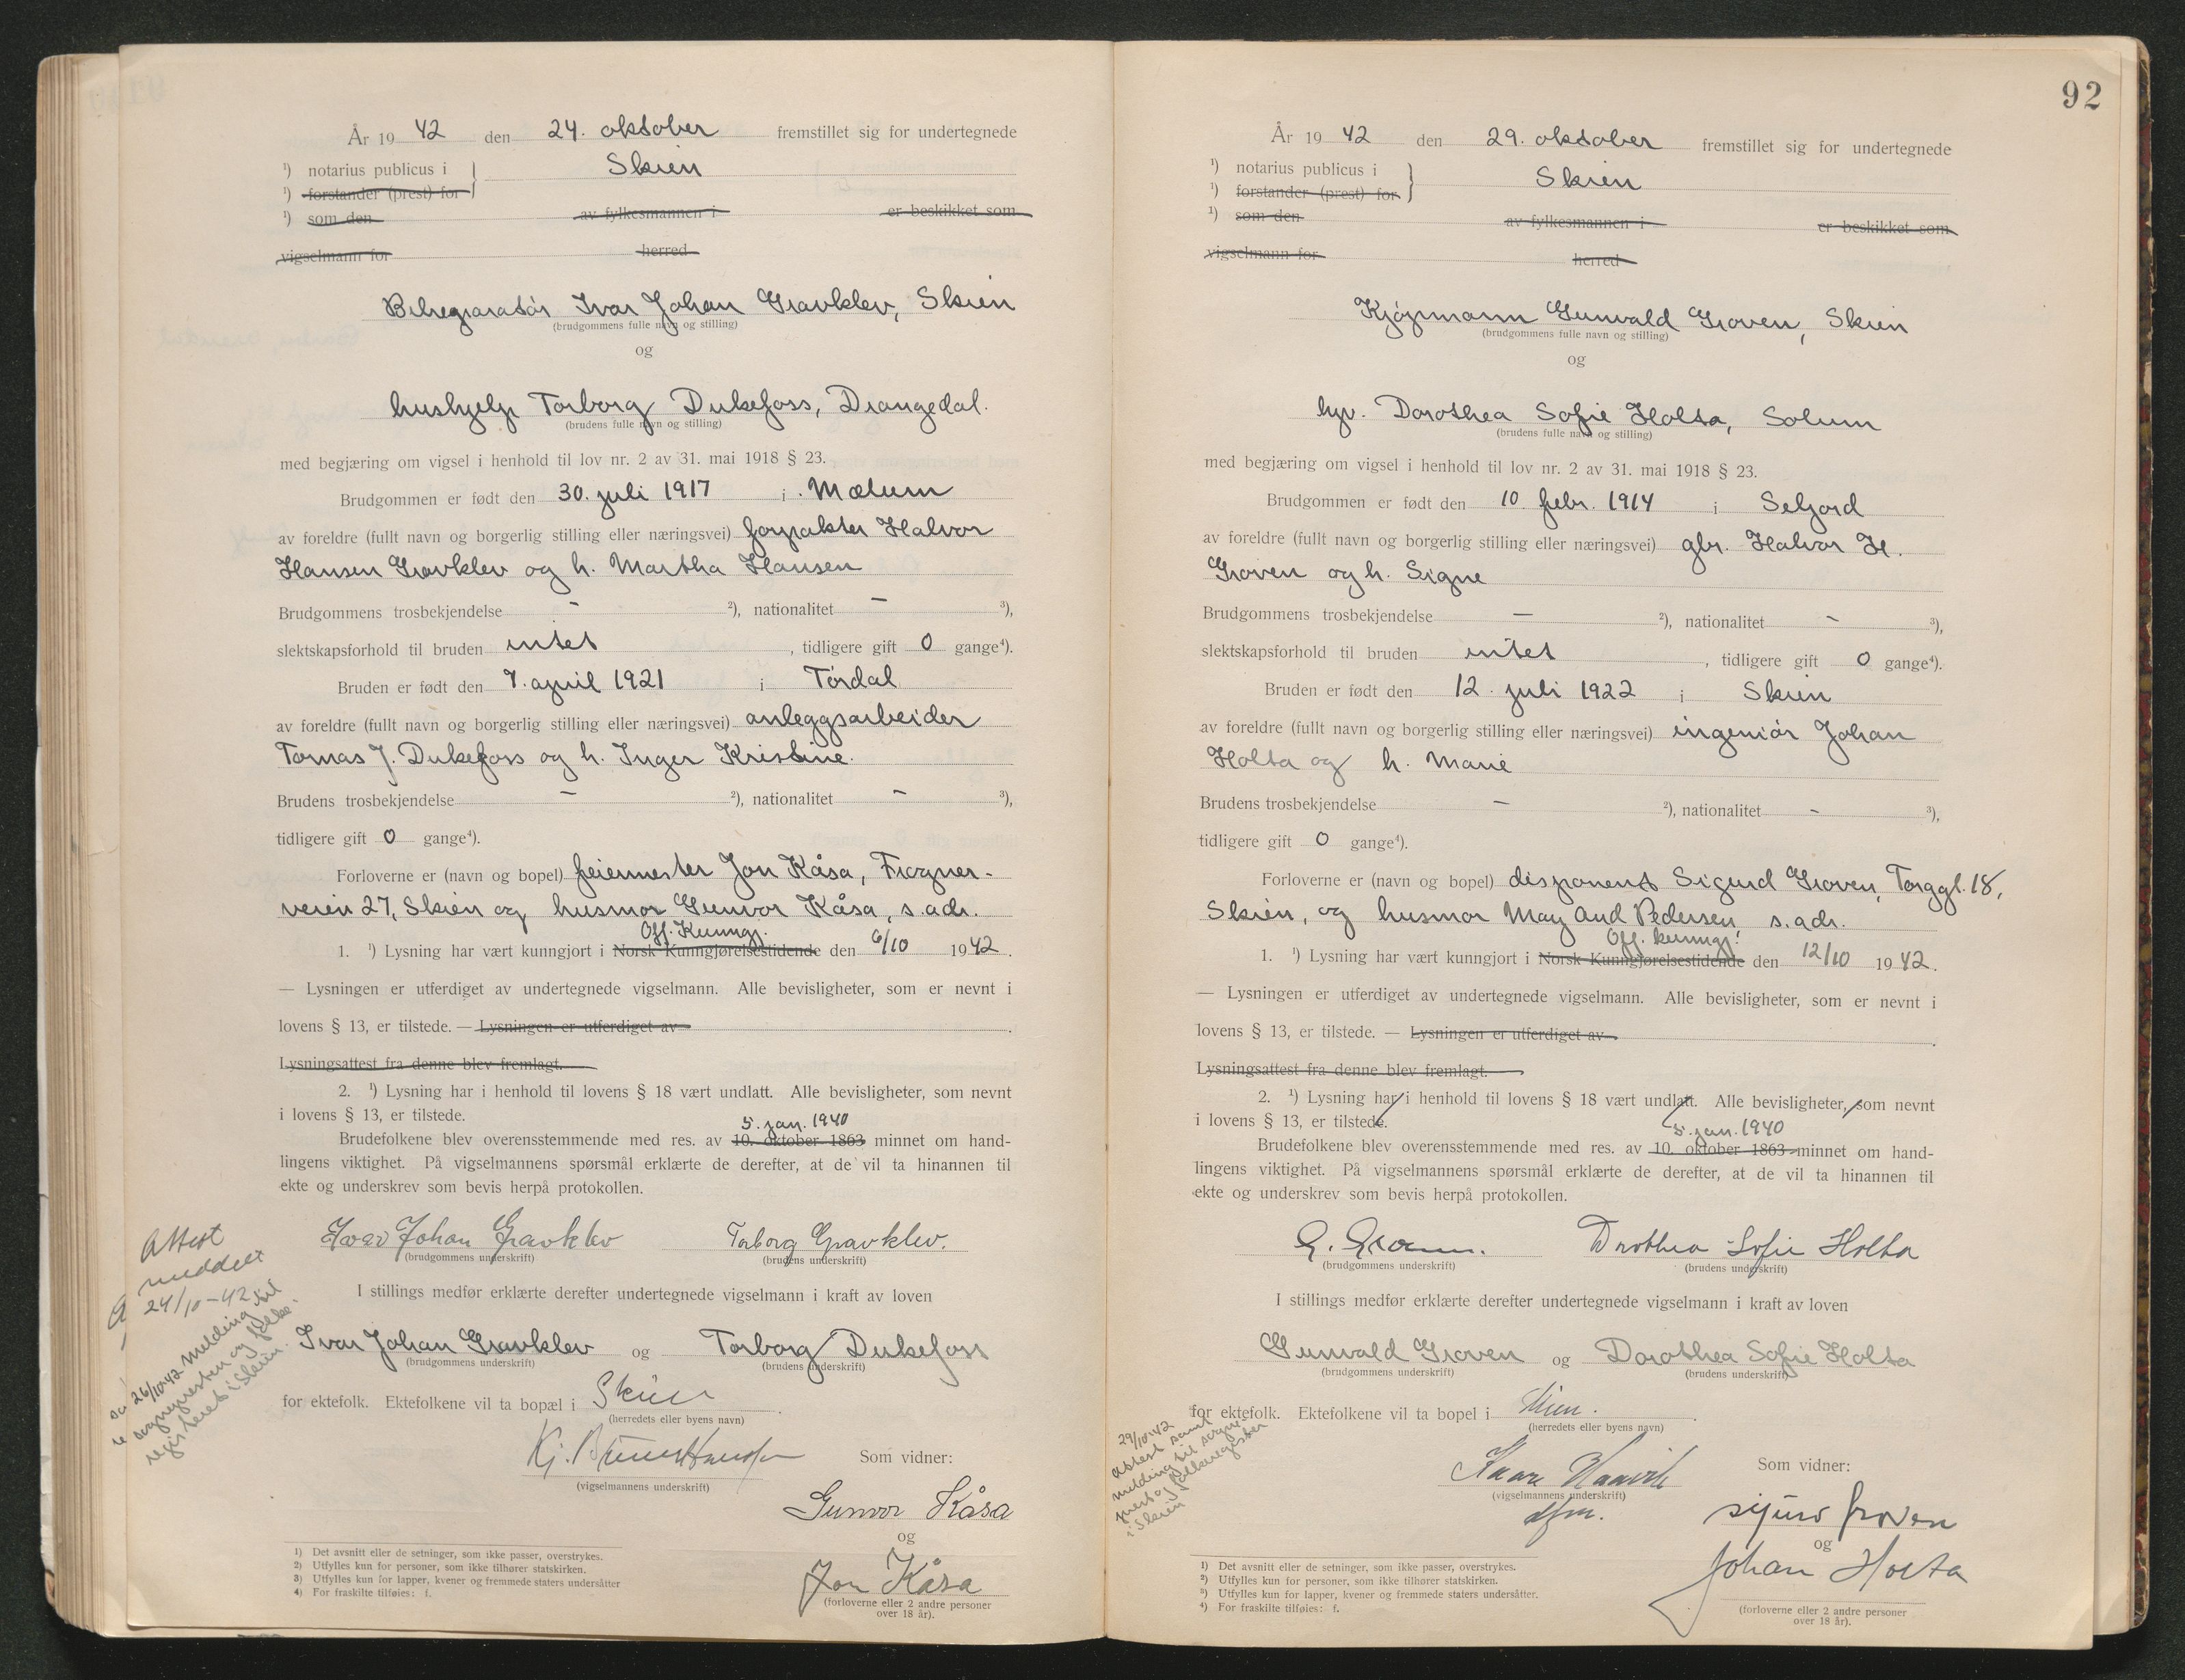 År 1942 den 24. oktober fremstillet sig for undertegnede
¹) notarius publicus i Skien
¹) forstander (prest) for
¹) som den av fylkesmannen i er beskikket som
vigselmann for herred
Bilreparatør Ivar Johan Gravklev, Skien
(brudgommens fulle navn og stilling)
og
hushjelp Torborg Dukefoss, Drangedal.
(brudens fulle navn og stilling)
med begjæring om vigsel i henhold til lov nr. 2 av 31. mai 1918 § 23.
Brudgommen er født den 30. juli 1917 i Mælum
av foreldre (fullt navn og borgerlig stilling eller næringsvei) forpakter Halvor
Hansen Gravklev og h. Martha Hansen
Brudgommens trosbekjendelse - ²), nationalitet - ³),
slektskapsforhold til bruden intet, tidligere gift 0 gange⁴).
Bruden er født den 7. april 1921 i Tørdal
av foreldre (fullt navn og borgerlig stilling eller næringsvei) anleggsarbeider
Tomas J. Dukefoss og h. Inger Kristine.
Brudens trosbekjendelse - ²), nationalitet - ³),
tidligere gift 0 gange⁴).
Forloverne er (navn og bopel) feiermester Jon Kåsa, Frogner-
veien 27, Skien og husmor Gunvor Kåsa, s. adr.
Off. Kunngj.
1. ¹) Lysning har vært kunngjort i Norsk Kunngjørelsestidende den 6/10 1942.
— Lysningen er utferdiget av undertegnede vigselmann. Alle bevisligheter, som er nevnt i
lovens § 13, er tilstede. — Lysningen er utferdiget av
Lysningsattest fra denne blev fremlagt.
2. ¹) Lysning har i henhold til lovens § 18 vært undlatt. Alle bevisligheter, som nevnt
i lovens § 13, er tilstede.
5. jan. 1940
Brudefolkene blev overensstemmende med res. av 10. oktober 1863 minnet om hand-
lingens viktighet. På vigselmannens spørsmål erklærte de derefter, at de vil ta hinannen til
ekte og underskrev som bevis herpå protokollen.
Ivar Johan Gravklev Torborg Gravklev.
(brudgommens underskrift) (brudens underskrift)
I stillings medfør erklærte derefter undertegnede vigselmann i kraft av loven
Ivar Johan Gravklev og Torborg Dukefoss
(brudgommens underskrift) (brudens underskrift)
for ektefolk. Ektefolkene vil ta bopæl i Skien.
(herredets eller byens navn)
Kj.
(vigselmannens underskrift)
Som vidner:
Gunvor Kåsa
og
Jon Kåsa
(forloverne eller 2 andre personer
over 18 år).
Attest
meddelt
24/10-42
26/10-42 melding til
sognepresten og folke-
registeret i Skien.
1) Det avsnitt eller de setninger, som ikke passer, overstrykes.
2) Utfylles kun for personer, som ikke tilhører statskirken.
3) Utfylles kun for lapper, kvener og fremmede staters undersåtter
4) For fraskilte tilføies: f.
92
År 1942 den 29. oktober fremstillet sig for undertegnede
¹) notarius publicus i Skien
¹) forstander (prest) for
¹) som den av fylkesmannen i er beskikket som
vigselmann for herred
Kjøpmann Gunvald Groven, Skien
(brudgommens fulle navn og stilling)
og
hp. Dorothea Sofie Holta, Solum
(brudens fulle navn og stilling)
med begjæring om vigsel i henhold til lov nr. 2 av 31. mai 1918 § 23.
Brudgommen er født den 10. febr. 1914 i Seljord
av foreldre (fullt navn og borgerlig stilling eller næringsvei) gbr. Halvor H.
Groven og h. Signe
Brudgommens trosbekjendelse — ²), nationalitet - ³),
slektskapsforhold til bruden intet, tidligere gift 0 gange⁴).
Bruden er født den 12. juli 1922 i Skien
av foreldre (fullt navn og borgerlig stilling eller næringsvei) ingeniør Johan
Holta og h. Marie
Brudens trosbekjendelse - ²), nationalitet - ³),
tidligere gift 0 gange⁴).
Forloverne er (navn og bopel) disponent Sigurd Groven, Torggt. 18,
Skien, og husmor May Aud Pedersen, s. adr.
Off. kunngj.
1. ¹) Lysning har vært kunngjort i Norsk Kunngjørelsestidende den 12/10 1942.
— Lysningen er utferdiget av undertegnede vigselmann. Alle bevisligheter, som er nevnt i
lovens § 13, er tilstede. — Lysningen er utferdiget av
Lysningsattest fra denne blev fremlagt.
2. ¹) Lysning har i henhold til lovens § 18 vært undlatt. Alle bevisligheter, som nevnt
i lovens § 13, er tilstede.
5. jan. 1940
Brudefolkene blev overensstemmende med res. av 10. oktober 1863 minnet om hand-
lingens viktighet. På vigselmannens spørsmål erklærte de derefter, at de vil ta hinannen til
ekte og underskrev som bevis herpå protokollen.
G. Groven. Drothea Sofie Holta
(brudgommens underskrift) (brudens underskrift)
I stillings medfør erklærte derefter undertegnede vigselmann i kraft av loven
Gunvald Groven og Dorothea Sofie Holta
(brudgommens underskrift) (brudens underskrift)
for ektefolk. Ektefolkene vil ta bopel i Skien.
(herredets eller byens navn)
Kaare Haavik
(vigselmannens underskrift)
dfm.
Som vidner:
Sigurd Groven
og
Johan Holta
(forloverne eller 2 andre personer
over 18 år).
29/10-42
attest samt
melding til sogne-
prest og folkeregister
i Skien
1) Det avsnitt eller de setninger, som ikke passer, overstrykes.
2) Utfylles kun for personer, som ikke tilhører statskirken.
3) Utfylles kun for lapper, kvener og fremmede staters undersåtter.
4) For fraskilte tilføies: f.